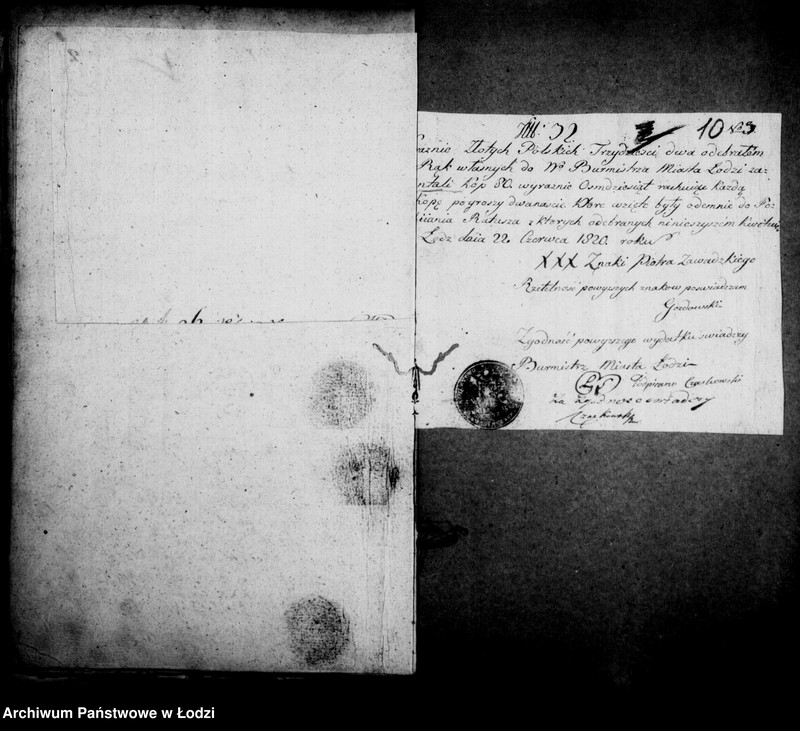 10 No 3
Złotych Polskich Trzydzieści dwa odebrałem
Rąk własnych do Wo Burmistrza Miasta Łodzi za
Kop 80. wyraznie Osmdziesiąt rachuiąc Każdą
Kopę po groszy dwanascie które wzięte były odemnie do
Ratusza z których odebranych ninieyszem kwituię
Łodz dnia 22. Czerwca 1820. roku
XXX Znaki Piotra Zawadzkiego
Rzetelność powyższych znakow poswiadczam
Gordowski
Zgodność powyzszego wydatku swiadczy
Burmistrz Miasta Łodzi
Podpisano Czarkowski
Za zgodnosc swiadczy
Czarkowski
Archiwum Państwowe w Łodzi